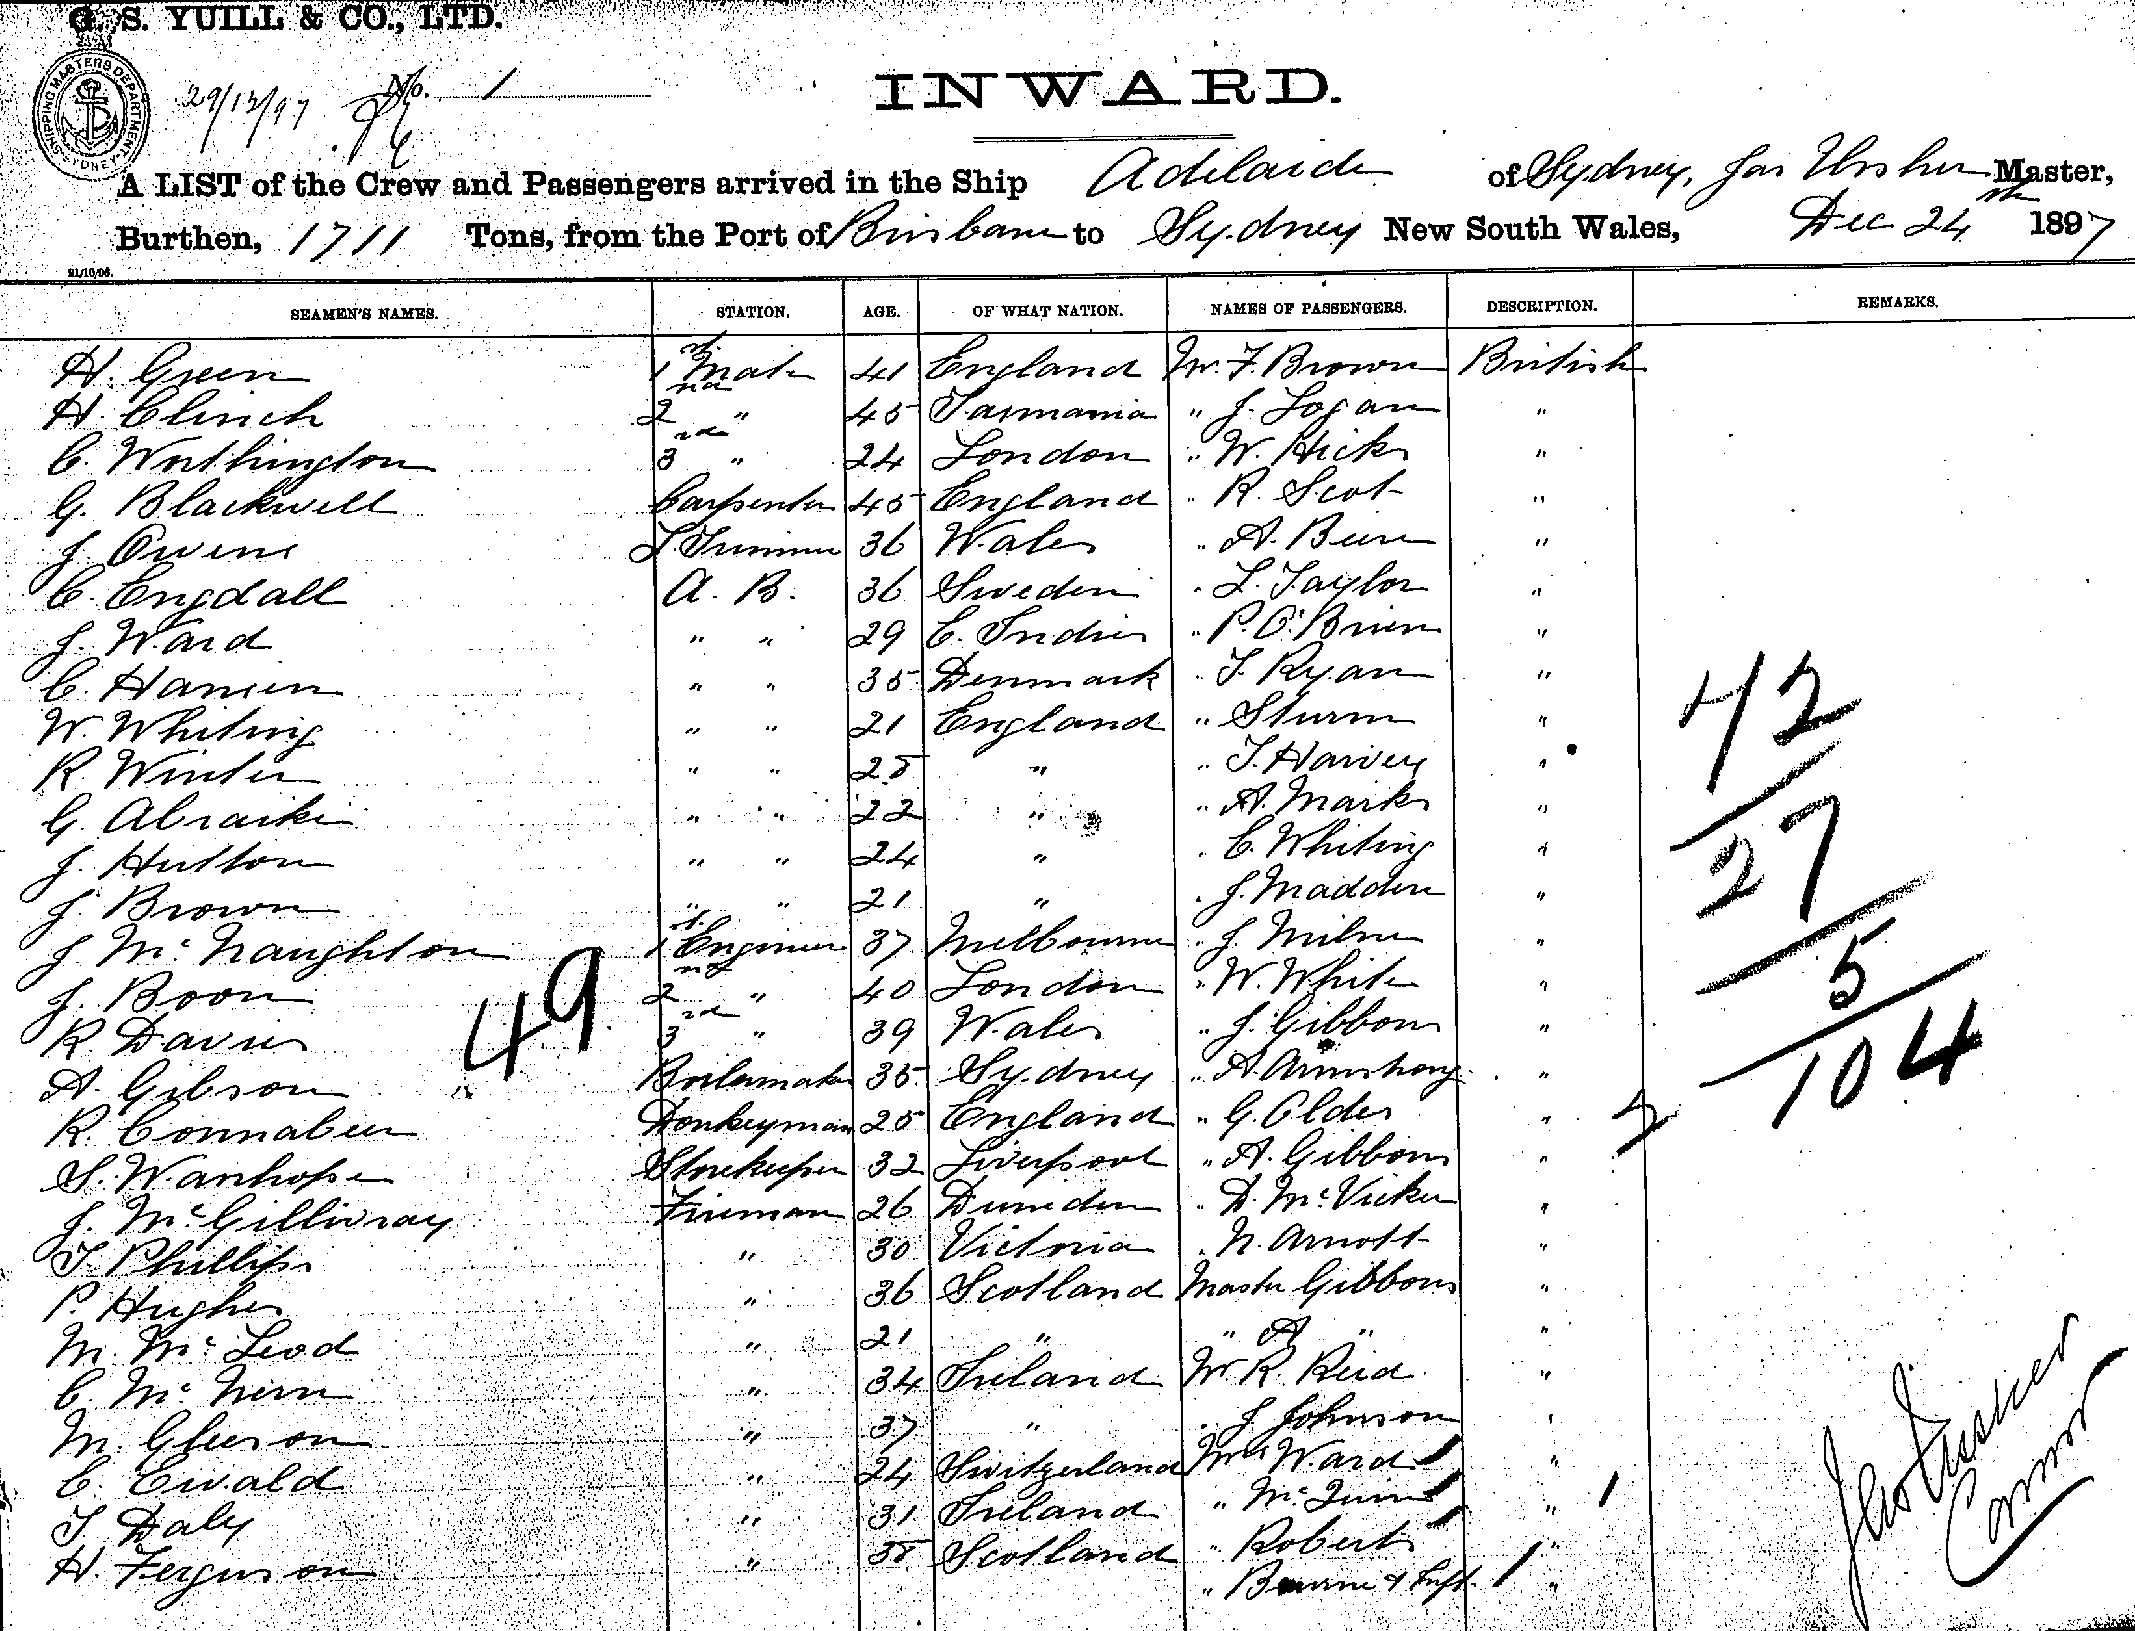 G. S. YUILL & CO., LTD.
SHIPPING MASTERS DEPARTMENT SYDNEY
29/12/97 No. 1
INWARD.
A LIST of the Crew and Passengers arrived in the Ship Adelaide of Sydney, Jas Ussher Master,
Burthen, 1711 Tons, from the Port of Brisbane to Sydney New South Wales, Dec 24th 1897
21/10/96.
SEAMEN'S NAMES. STATION. AGE. OF WHAT NATION. NAMES OF PASSENGERS. DESCRIPTION. REMARKS.
H. Green 1st Mate 41 England Mr. F. Brown British
H. Clinch 2nd " 45 Tasmania " J. Logan "
C. Worthington 3rd " 24 London " W. Hicks "
G. Blackwell Carpenter 45 England " R. Scot "
J. Owens L. Trimmer 36 Wales " A. "
C. Engdall A. B. 36 Sweden " L. Taylor "
J. Ward " " 29 E. Indies " P. O'Brien "
C. Hansen " " 35 Denmark " T. Ryan "
W. Whiting " " 21 England " Sturm "
R. Winter " " 25 " " T. Harvey "
G. " " 22 " " A. Marks "
J. Hutton " " 24 " " C. Whiting "
J. Brown " " 21 " " J. Madden "
J McNaughton 1st Engineer 37 Melbourne " J. Milne "
J. Boon 2nd " 40 London " W. White "
R. Davies 3rd " 39 Wales " J. Gibbons "
A. Gibson Boilermaker 35 Sydney " A. Armstrong "
R. Connabeer Donkeyman 25 England " G. Older "
S. Wanhope Storekeeper 32 Liverpool " A. Gibbons "
J. McGillivray Fireman 26 Dunedin " D. McVicker "
T. Phillips " 30 Victoria " N. Arnott "
P. Hughes " 36 Scotland Master Gibbons "
M. McLeod " 21 " " A " "
C. McNern " 34 Ireland Mr R. Reid "
M. Gleeson " 37 " " J Johnson "
C. Ewald " 24 Switzerland Mrs Ward "
T. Daly " 31 Ireland " "
H. Ferguson " 38 Scotland " Roberts "
" Bourne & Inft. "
49
42
27
5
104
Jas Ussher